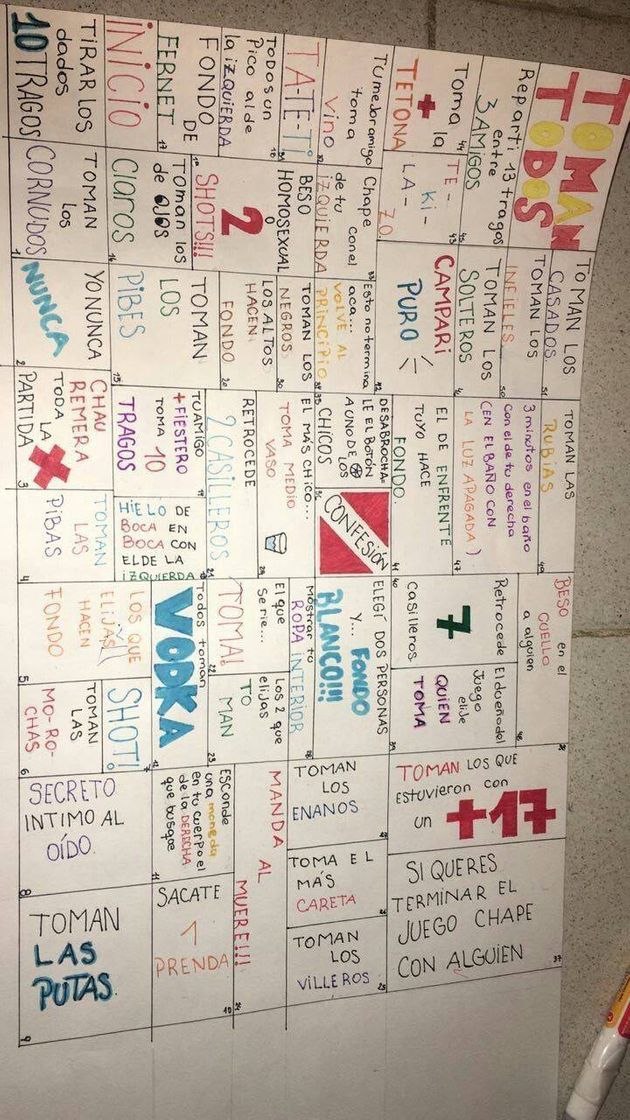 TOMAN
TODOS
INICIO
TIRAR LOS
dados
10 TRAGOS
TOMAN
LOS
CORNUDOS
1
YO NUNCA
NUNCA
2
CHAU
REMERA
TODA LA
PARTIDA
3
TOMAN
LAS
PIBAS
4
LOS QUE
ELIJAS
HACEN
FONDO
5
TOMAN
LAS
MO-RO-
CHAS
6
SHOT!
7
SECRETO
INTIMO AL
OÍDO.
8
TOMAN
LAS
PUTAS.
9
SACATE
1
PRENDA
10
ESCONDE
una moneda
en tu cuerpo el
de la DERECHA
que busque
11
Todos toman
VODKA
12
HIELO DE
BOCA EN
BOCA CON
EL DE LA
IZQUIERDA
TU AMIGO
+ FIESTERO
TOMA 10
TRAGOS
TOMAN
LOS
PIBES
15
Toman los
de OJOS
Claros
16
FONDO
DE
FERNET
17
Todos un
Pico al de
la IZQUIERDA
18
2
SHOTS!!!
19
LOS ALTOS
HACEN
FONDO
20
RETROCEDE
2 CASILLEROS
21
TOMA!
22
Los 2 que
elijas
TO
MAN
23
MANDA AL
MUERE!!!
24
TOMAN
LOS
VILLEROS
25
TOMA EL
MÁS
CARETA
26
TOMAN
LOS
ENANOS
27
Mostrar tu
ROPA INTERIOR
28
El que
Se ríe...
EL MÁS CHICO...
TOMA MEDIO
VASO
29
TOMAN LOS
NEGROS
30
BESO
HOMOSEXUAL
TA-TE-TI
31
Tu mejor amigo
toma
vino
32
Chape con el
de tu
IZQUIERDA
33
Esto no termina
acá...
VOLVE AL
PRINCIPIO
35
DESABROCHA-
LE EL BOTÓN
A UNO DE LOS
CHICOS
36
CONFESIÓN
ELEGÍ DOS PERSONAS
Y... FONDO
BLANCO!!!
39
SI QUERES
TERMINAR EL
JUEGO CHAPE
CON ALGUIEN
37
TOMAN LOS QUE
estuvieron con
un +17
38
Retrocede
7
Casilleros
40
EL DE ENFRENTE
TUYO HACE
FONDO.
41
CAMPARI
PURO
42
TE-
KI-
LA-
ZO.
43
Toma la
+
TETONA
44
Repartí 13 tragos
entre
3 AMIGOS
45
TOMAN LOS
SOLTEROS
3 minutos en el baño
con el de tu derecha
(EN EL BAÑO CON
LA LUZ APAGADA)
47
El dueño del
juego
elije
QUIEN
TOMA
48
BESO en el
CUELLO
a alguien
49
TOMAN LAS
RUBIAS
TOMAN LOS
INFIELES
50
TOMAN LOS
CASADOS
51